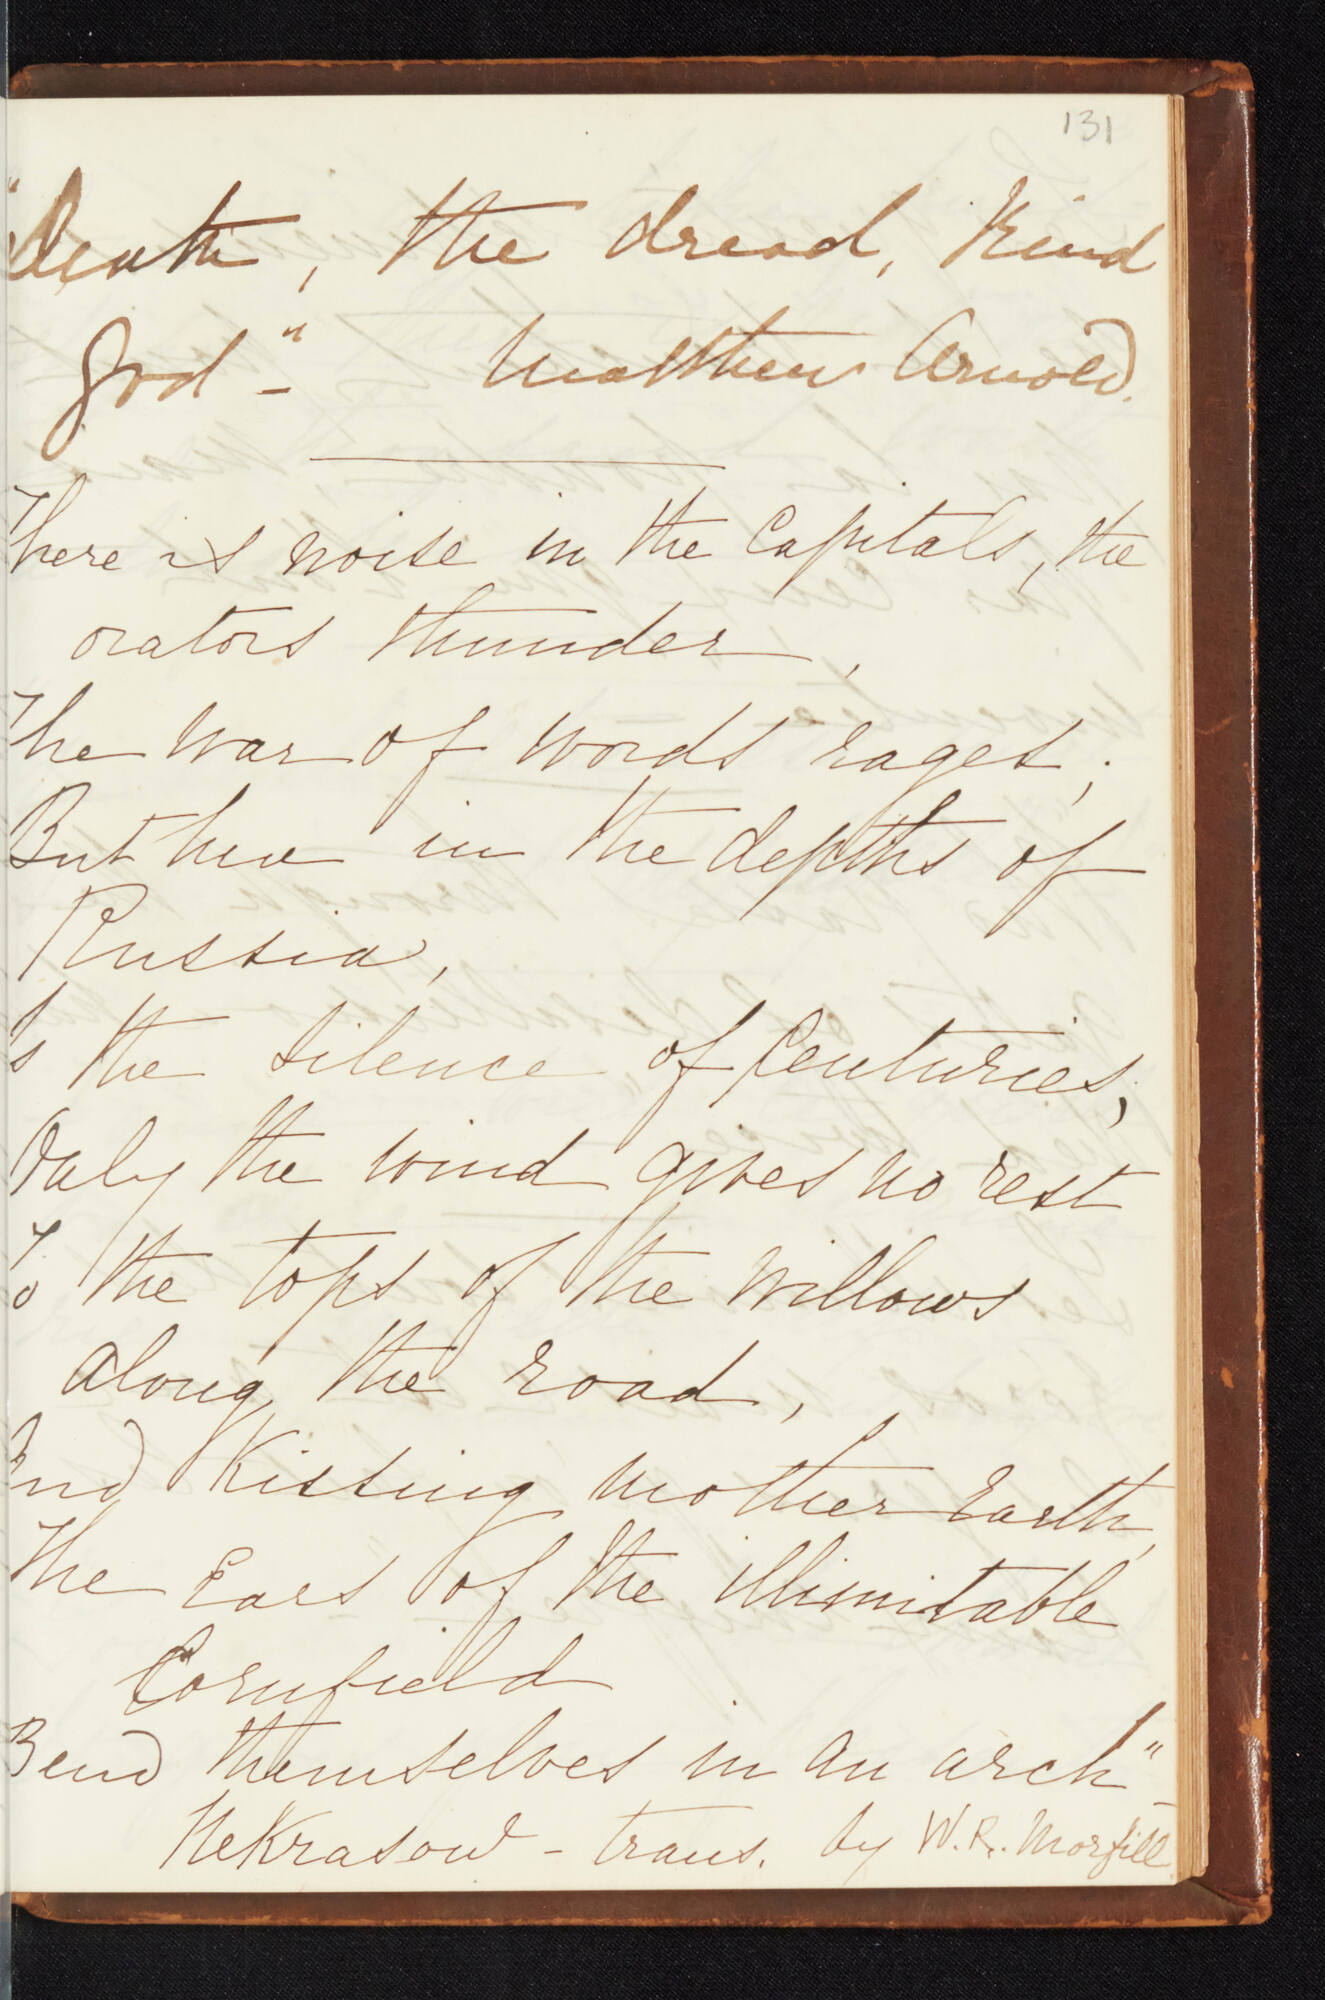 131
"death, the dread, kind
God-" Matthew Arnold.
There is noise in the Capitals, the
orators thunder,
The war of words rages;
But here in the depths of
Russia,
Is the silence of Centuries,
Only the wind gives no rest
To the tops of the willows
along the road,
And kissing mother Earth,
The Ears of the illimitable
Cornfield
Bend themselves in an arch"-
Nekrasow - trans. by W.R. Morfill